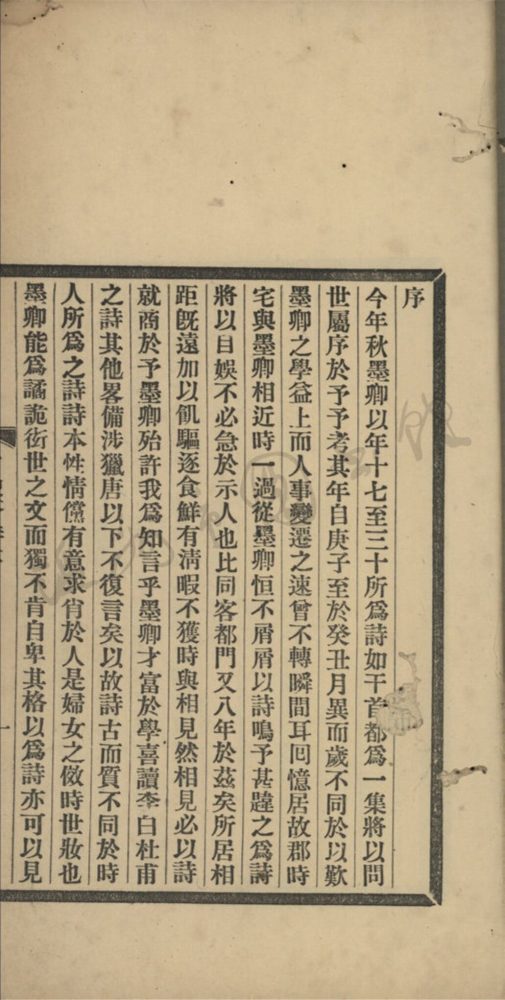 序
今年秋墨卿以年十七至三十所爲詩如干首都爲一集將以問
世屬序於予予考其年自庚子至於癸丑月異而歲不同於以歎
墨卿之學益上而人事變遷之速曾不轉瞬間耳囘憶居故郡時
宅與墨卿相近時一過從墨卿恒不屑屑以詩鳴予甚韙之爲詩
將以自娛不必急於示人也比同客都門又八年於茲矣所居相
距旣遠加以飢驅逐食鮮有淸暇不獲時與相見然相見必以詩
就商於予墨卿殆許我爲知言乎墨卿才富於學喜讀李白杜甫
之詩其他畧備涉獵唐以下不復言矣以故詩古而質不同於時
人所爲之詩詩本性情儻有意求肖於人是婦女之倣時世妝也
墨卿能爲譎詭衒世之文而獨不肯自卑其格以爲詩亦可以見
一